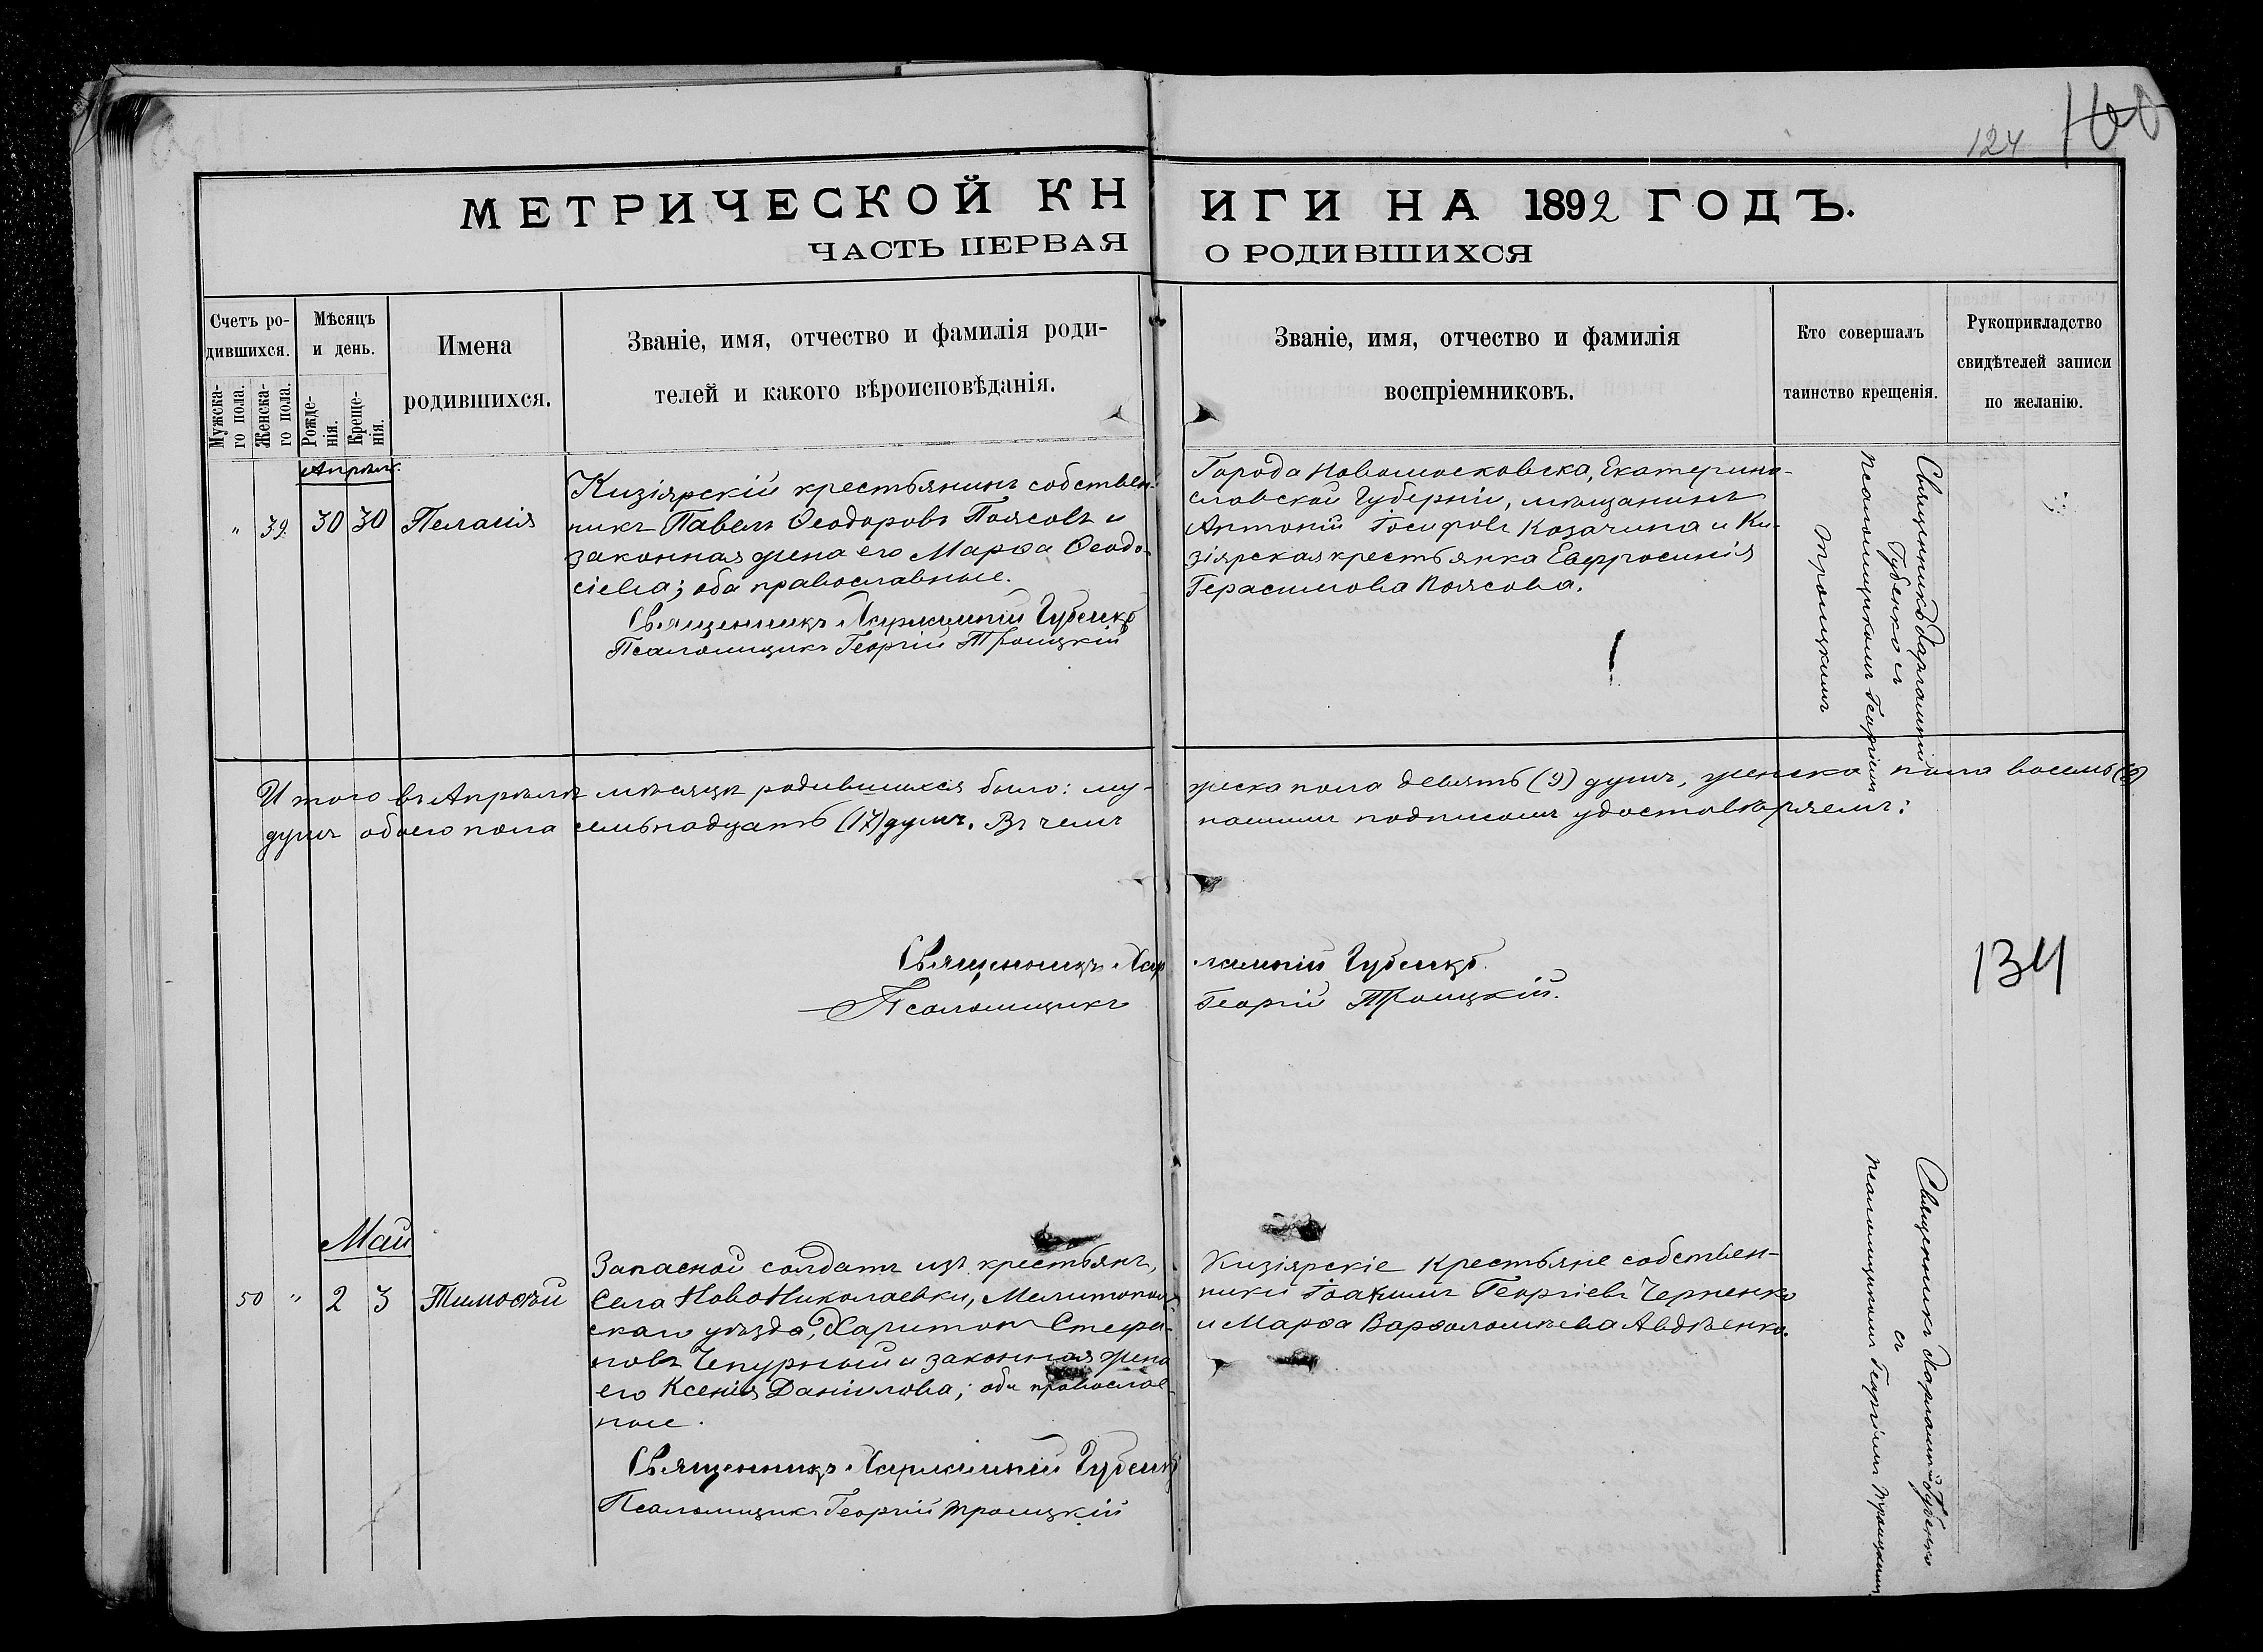 124 160
МЕТРИЧЕСКОЙ КНИГИ НА 1892 ГОДЪ.
ЧАСТЬ ПЕРВАЯ О РОДИВШИХСЯ
Счетъ ро-
дившихся.
Мужска-
го пола.
Женска-
го пола.
Мѣсяцъ
и день.
Рожде-
нія.
Креще-
нія.
Имена
родившихся.
Званіе, имя, отчество и фамилія роди-
телей и какого вѣроисповѣданія.
Званіе, имя, отчество и фамилія
воспріемниковъ.
Кто совершалъ
таинство крещенія.
Рукоприкладство
свидѣтелей записи
по желанію.
Апрѣль.
" 39. 30 30 Пелагія
Кизіярскій крестьянинъ собствен-
никъ Павелъ Ѳеодоровъ Поясовъ и
законная жена его Марѳа Ѳеодо-
сіева; оба православные.
Священникъ Харлампій Губенко
Псаломщикъ Георгій Троицкій
Города Новомосковска, Екатерино-
славской Губерніи, мѣщанинъ
Антоній Іосифовъ Козачина и Ки-
зіярская крестьянка Евфросинія
Герасимова Поясова.
Священникъ Харлампій
Губенко съ
псаломщикомъ Георгіемъ
Троицкимъ
Итого въ Апрѣлѣ мѣсяцѣ родившихся было: му- жеска пола девять (9) душъ, женска пола восемь (8)
душъ обоего пола семьнадцать (17) душъ. Въ чемъ нашимъ подписомъ удостовѣряемъ:
Священникъ Харлампій Губенко.
Псаломщикъ Георгій Троицкій.
134
Май
50 " 2 3 Тимоѳей
Запасной солдатъ изъ крестьянъ,
села НовоНиколаевки, Мелитополь-
скаго уѣзда, Харитонъ Стефа-
новъ Чепурный и законная жена
его Ксенія Даніилова; оба православ-
ные.
Священникъ Харлампій Губенко
Псаломщикъ Георгій Троицкій
Кизіярскіе крестьяне собствен-
ники Іоакимъ Георгіевъ Черненко
и Марѳа Варѳоломѣева Авдѣенко.
Священникъ Харлампій Губенко
съ
псаломщикомъ Георгіемъ Троицкимъ